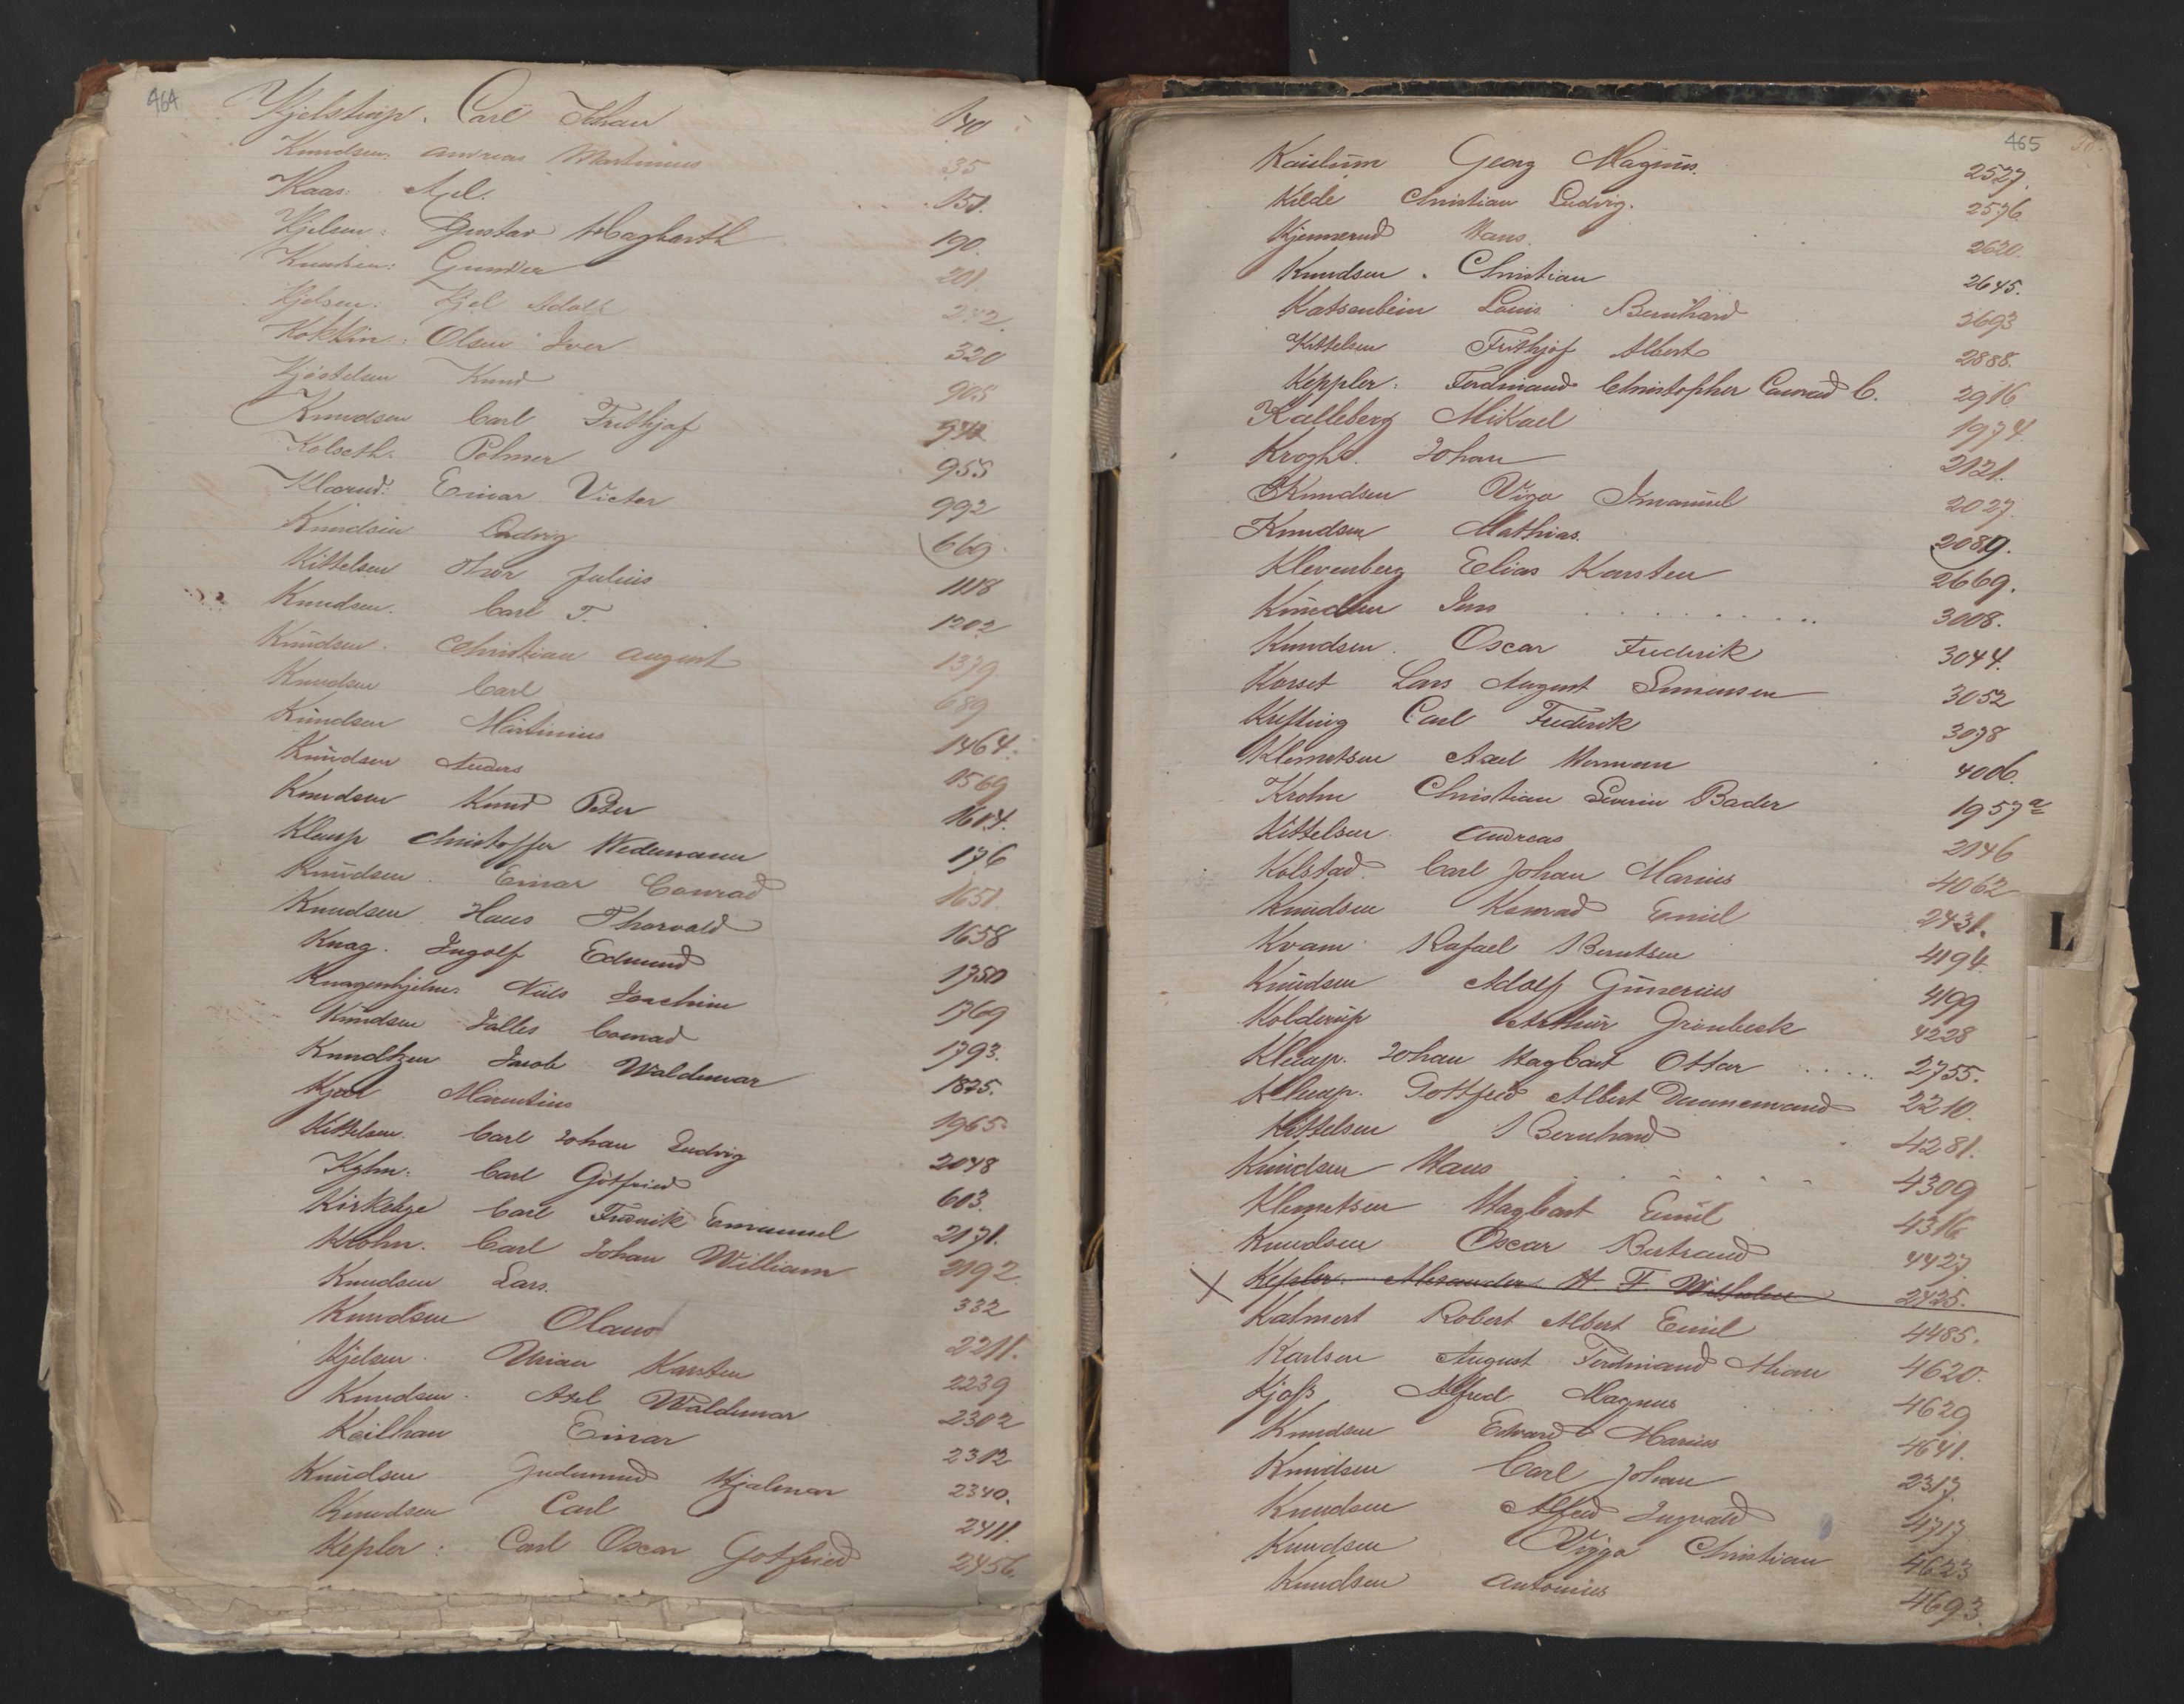 464
Kjelstrup. Carl Johan 140
Knudsen. Andreas Martinius 35
Kaas. Axel. 151.
Kjelsen: Gustav Hagbarth 190.
Knudsen: Gunder 201.
Kjelsen: Kjel Adolf 232.
Olsen Iver 320
Kjøstelsen Knud 905
Knudsen Carl Frithjof 942
Kolseth. Palmer 955
Klærud: Einar Victor 992
Knudsen Ludvig 669.
Kittelsen Thor Julius 1118
Knudsen. Carl T. 1202
Knudsen. Christian August 1379
Knudsen Carl 689
Knudsen Martinius 1464.
Knudsen Anders 1569
Knudsen Knud Peter 1614.
Klaup Christoffer Wedemann 176
Knudsen. Einar Conrad 1651.
Knudsen Hans Thorvald 1658
Knag. Ingolf Edmund 1750
Knagenhjelm. Niels Joachim 1769
Knudsen Jalles Conrad 1793.
Knudtzen Jacob Waldemar 1825.
Kjær Martinius 1965
Kittelsen. Carl Johan Ludvig 2048
Kyhn. Carl Gotfried 603.
Kirkebye Carl Fredrik Emanuel 2171.
Krohn. Carl Johan William 2192.
Knudsen Lars. 332
Knudsen Olaus 2211.
Kjelsen. Urian Karsten 2239
Knudsen. Axel Waldemar 2302
Keilhau Einar 2312
Knudsen Gudmund Hjalmar 2340.
Knudsen Carl 2411.
Kepler: Carl Oscar Gotfried 2456.
465
Georg Magnus. 2527.
Kilde Christian Ludvig. 2576
Kjennerud Hans. 2620.
Knudsen. Christian 2645.
Katsenbein Louis Bernhard 2693
Kittelsen Frithjof Albert 2888.
Keppler: Ferdinand Christopher Conrad C. 2916
Kalleberg Mikael 1974.
Kroghs. Johan 2121.
Knudsen Vigo Imanuel 2027.
Knudsen Mathias. 2089.
Klevenberg Elias Karsten 2669.
Knudsen Jens 3008.
Knudsen. Oscar Frederik 3044.
Korset Lars August Simensen 3052
Krefting Carl Frederik 3078
Klemetsen Axel Herman 4006.
Krohn Christian Severin Bader 1957a
Kittelsen. Andreas 2146
Kolstad. Carl Johan Marius 4062
Knudsen Konrad Emil 2431.
Kvam Rafael Berntsen 4194.
Knudsen Adolf Gunerius 4199
Kolderup Arthur Grønbeck 4228
Klaup. Johan Hagbart Ottar 2755.
Klaup. Gottfred Albert Dannemand 2210.
Kittelsen Bernhard 4281.
Knudsen Hans 4309
Klemetsen Hagbart Emil 4316
Knudsen Oscar Bertrand 4427.
X Kepler. Alexander H. F. Wilhelm 2425.
Kalmert Robert Albert Emil 4485.
Karlsen August Ferdinand 4620.
Kjoss Alfred Magnus 4629
Knudsen Edvard Marius 4641.
Knudsen Carl Johan 2317.
Knudsen Alfred Ingvald 4717
Knudsen Viggo Christian 4623
Knudsen Antonius 4693.
L